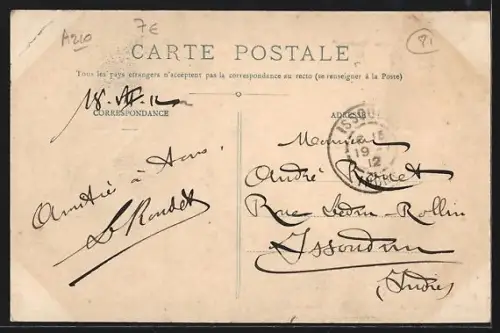 A210
7€
81
CARTE POSTALE
Tous les pays étrangers n'acceptent pas la correspondance au recto (se renseigner à la Poste)
18. VII. 12
CORRESPONDANCE
ADRESSE
ISSOUDUN
19
12
Amitié à tous
Monsieur
André
Rue Ledru-Rollin
Issoudun
(Indre)